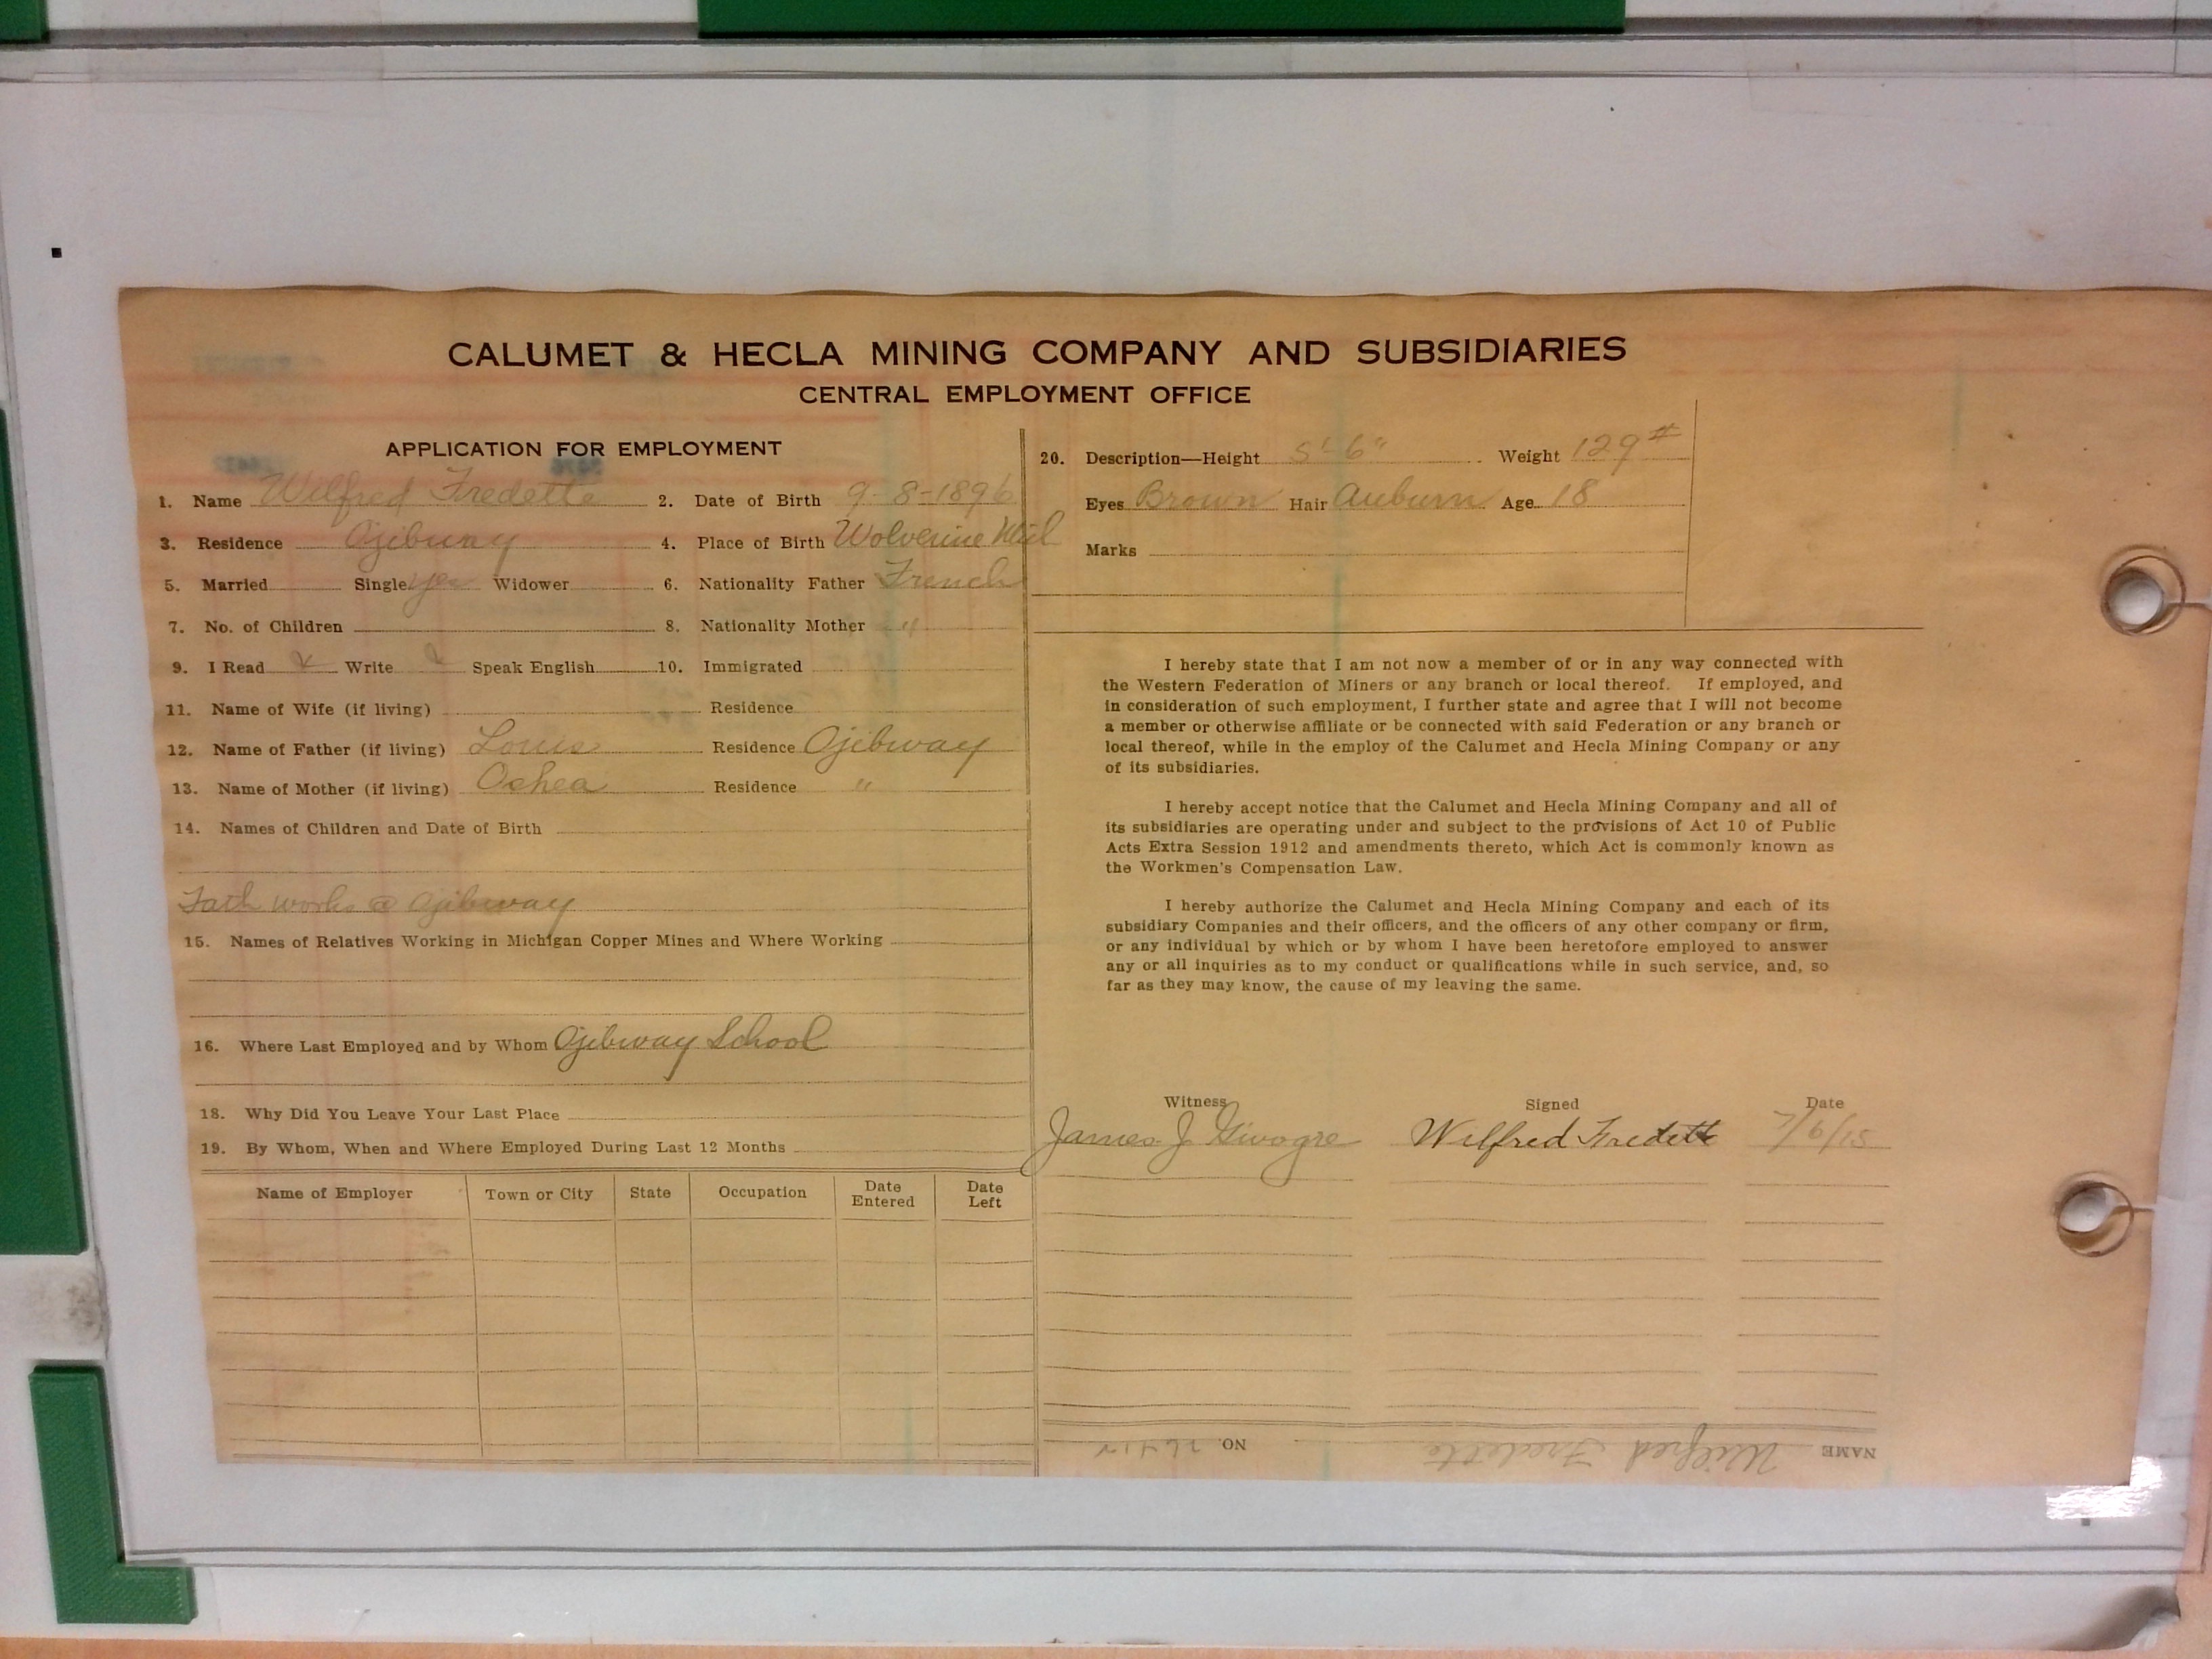 CALUMET & HECLA MINING COMPANY AND SUBSIDIARIES
CENTRAL EMPLOYMENT OFFICE
APPLICATION FOR EMPLOYMENT
1. Name Wilfred Fredette 2. Date of Birth 9-8-1896
3. Residence Ojibway 4. Place of Birth Wolverine
5. Married Single yes Widower 6. Nationality Father French
7. No. of Children 8. Nationality Mother "
9. I Read Write Speak English 10. Immigrated
11. Name of Wife (if living) Residence
12. Name of Father (if living) Louis Residence Ojibway
13. Name of Mother (if living) Residence "
14. Names of Children and Date of Birth
Fath works @ Ojibway
15. Names of Relatives Working in Michigan Copper Mines and Where Working
16. Where Last Employed and by Whom Ojibway School
18. Why Did You Leave Your Last Place
19. By Whom, When and Where Employed During Last 12 Months
Name of Employer Town or City State Occupation Date Entered Date Left
20. Description—Height 5'-6" Weight 129#
Eyes Brown Hair Auburn Age 18
Marks
I hereby state that I am not now a member of or in any way connected with
the Western Federation of Miners or any branch or local thereof. If employed, and
in consideration of such employment, I further state and agree that I will not become
a member or otherwise affiliate or be connected with said Federation or any branch or
local thereof, while in the employ of the Calumet and Hecla Mining Company or any
of its subsidiaries.
I hereby accept notice that the Calumet and Hecla Mining Company and all of
its subsidiaries are operating under and subject to the provisions of Act 10 of Public
Acts Extra Session 1912 and amendments thereto, which Act is commonly known as
the Workmen's Compensation Law.
I hereby authorize the Calumet and Hecla Mining Company and each of its
subsidiary Companies and their officers, and the officers of any other company or firm,
or any individual by which or by whom I have been heretofore employed to answer
any or all inquiries as to my conduct or qualifications while in such service, and, so
far as they may know, the cause of my leaving the same.
Witness Signed Date
James J. Wilfred Fredette 7/6/15
NAME Wilfred Fredette NO.